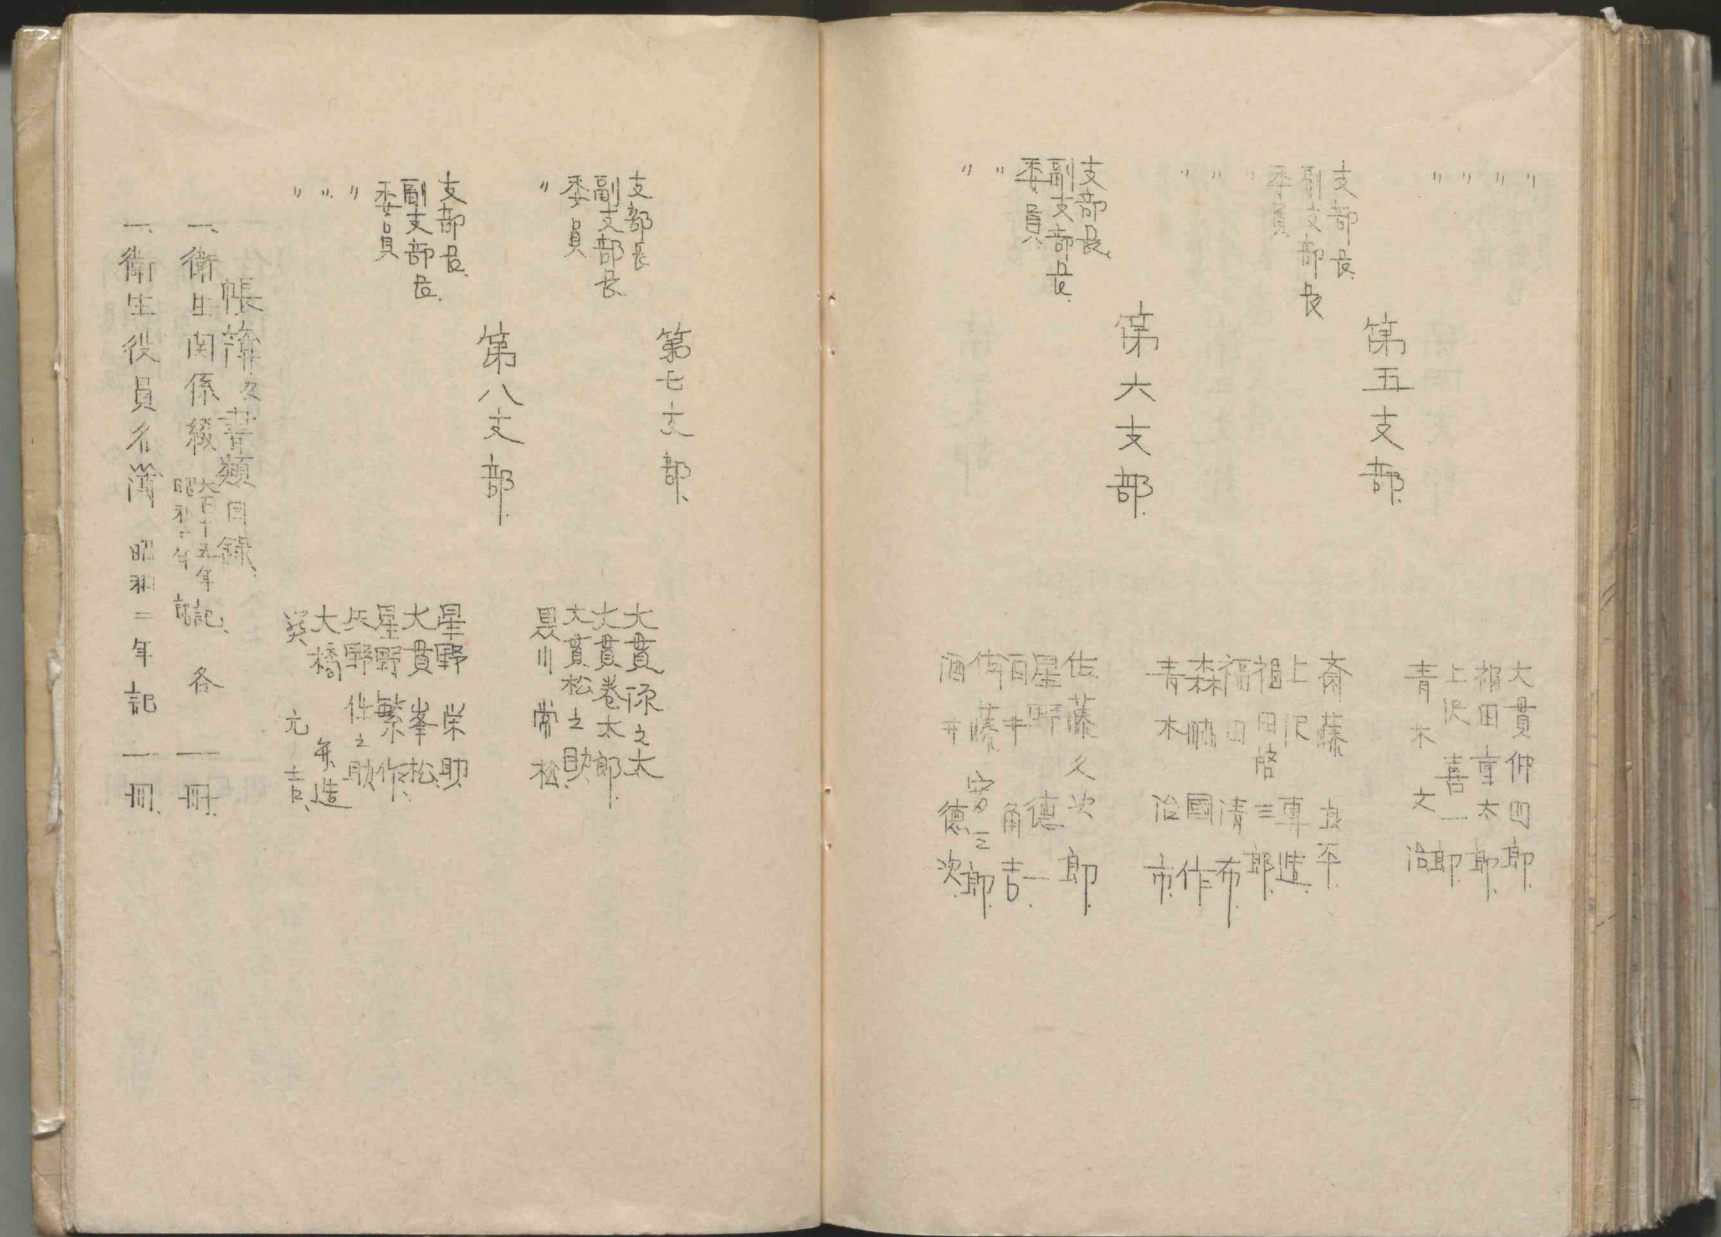 〃 大貫仲四郎
〃 福田重太郎
〃 上沢喜一郎
〃 青木文治
第五支部
支部長 斎藤良平
副支部長 上沢専造
委員 福田啓三郎
〃 福田清布
〃 森嶋國作
〃 青木治市
第六支部
支部長 佐藤久次郎
副支部長 星野徳一
委員 酒井角吉
〃 佐藤安三郎
〃 酒井徳次
第七支部
支部長 大貫弥之太
副支部長 大貫巻太郎
委員 大貫松之助
〃 黒川常松
第八支部
支部長 星野栄助
副支部長 大貫峯松
委員 星野繁作
〃 矢野伴之助
〃 大橋 造
〃 元吉
帳簿及書類目録
一、衛生関係綴 大正十五年 昭和二年 記 各一冊
一、衛生役員名簿 昭和二年記 一冊